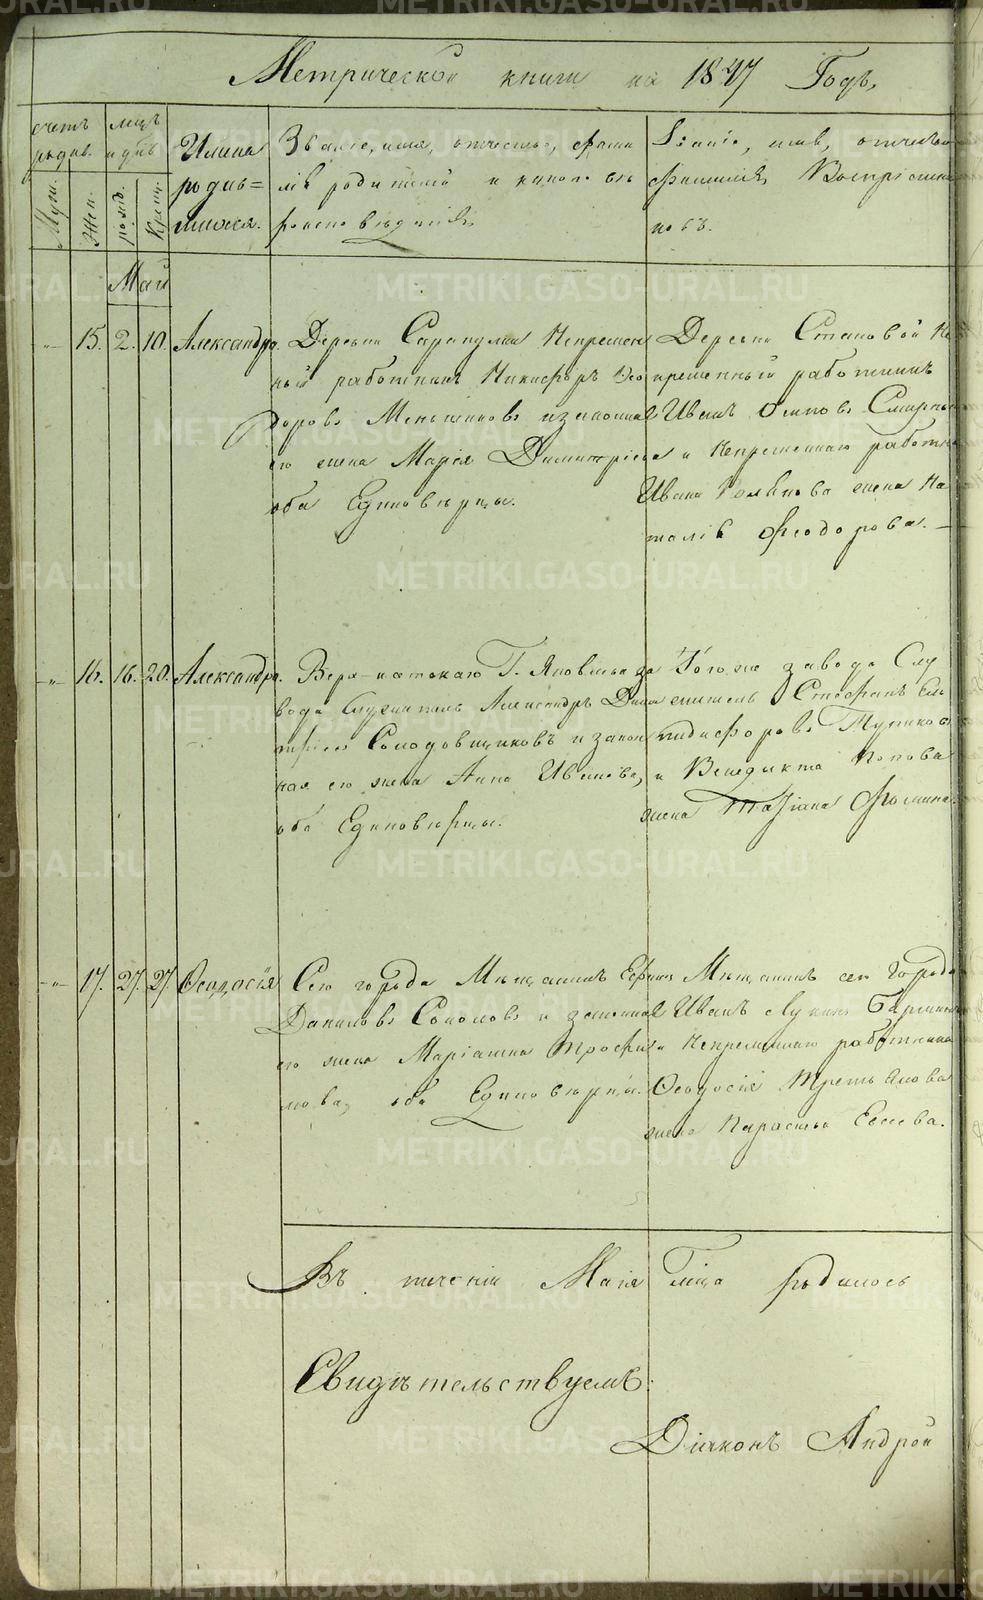 Метрической книги на 1847 Годъ,
счетъ родив.
мѣцъ и днь
Имена родив=шихся.
Званіе, имя, отчество, фами
лія родителей и какого вѣ
роисповѣданія.
Званіе, имя, отчество
фамилія Воспріемни
ковъ.
Муж.
Жен.
рожд.
Крещ.
Май
15. 2. 10. Александра.
Деревни Сарапулки Непремен
ный работникъ Никифоръ Ѳео
доровъ Меньшиковъ и законная
его жена Марія Димитріева
оба Единовѣрцы.
Деревни Становой Не
премѣнный работникъ
Иванъ Осиповъ Смирн
и Непременнаго работн
Ивана жена На
талія Ѳеодорова.
16. 16. 20. Александра.
Верх-изтскаго Г. Яковлева за
вода Служитель Александръ Дими
тріевъ Солодовщиковъ и закон
ная его жена Анна Иванова,
оба Единовѣрцы.
Тогоже завода Слу
житель Стефанъ Ел
пидифоровъ Тупиков
и Венедыкта Попова
жена Татіана Ѳомина.
17. 27. 27. Ѳеодосія
Сего города Мѣщанинъ Ефимъ
Даниловъ Соколовъ и законная
его жена Маріанна Трофи
мова, оба Единовѣрцы.
Мѣщанинъ сего города
Иванъ Лукинъ
и Непременнаго работника
Ѳеодосія Третьякова
жена Парасковья Евсева.
Въ теченіи Маія мѣца родилось
Свидѣтельствуемъ:
Діаконъ Андрей
METRIKI.GASO-URAL.RU